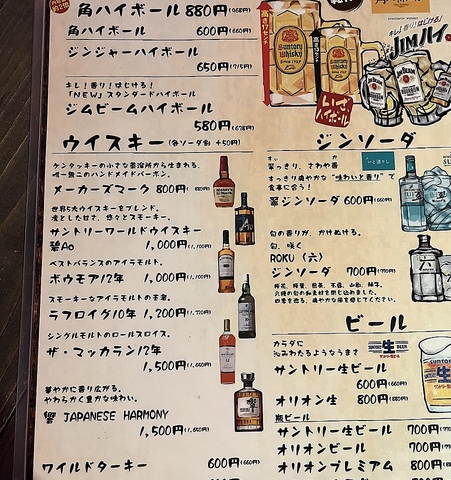 角ハイボール 880円(968円)
角ハイボール 600円(660円)
ジンジャーハイボール
650円(715円)
キレ!香り!はじける!
「NEW」スタンダードハイボール
ジムビームハイボール
580円(638円)
ウイスキー(各ソーダ割 +50円)
ケンタッキーの小さな蒸溜所から生まれる、
唯一無二のハンドメイドバーボン。
メーカーズマーク 800円(880円)
世界5大ウイスキーをブレンド。
凛とした甘さ、悠々とスモーキー。
サントリーワールドウイスキー
碧Ao 1,000円(1,100円)
ベストバランスのアイラモルト。
ボウモア12年 1,000円(1,100円)
スモーキーなアイラモルトの王者。
ラフロイグ10年 1,200円(1,320円)
シングルモルトのロールスロイス。
ザ・マッカラン12年
1,500円(1,650円)
華やかに香り広がる、
やわらかく豊かな味わい。
響 JAPANESE HARMONY
1,500円(1,650円)
ワイルドターキー 600円(660円)
Suntory
Whisky
Suntory
Whisky
いざ
ハイボール
キレ!香り!はじける!
JIMハイ
JIM BEAM
ジンソーダ
すっきり、さわや
すっきり爽やかな "味わいと香り" で
食事に合う!
翠ジンソーダ 600円(660円)
旬の香りが、かけぬける。
旬、咲く
ROKU〈六〉
ジンソーダ 700円(770円)
桜花、桜葉、煎茶、玉露、山椒、柚子。
六
ビール
カラダに
沁みわたるようなうまさ
生
サントリー生ビール
600円(660円)
オリオン生 800円(880円)
瓶ビール
サントリー生ビール 700円
オリオンビール 700円
オリオンプレミアム 800円
SUNTORY
生